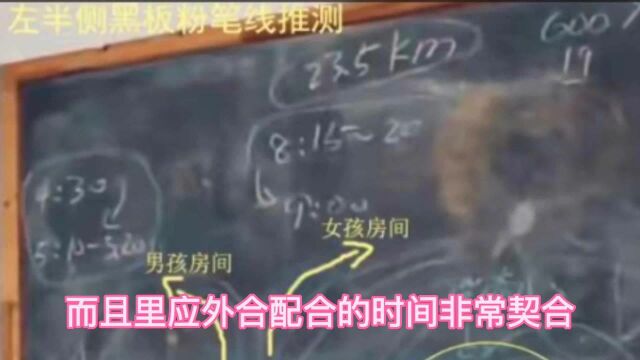 左半侧黑板粉笔线推测
600
23.5km
19
8:15~20
4:30
9:00
5:10-5:20
女孩房间
男孩房间
而且里应外合配合的时间非常契合